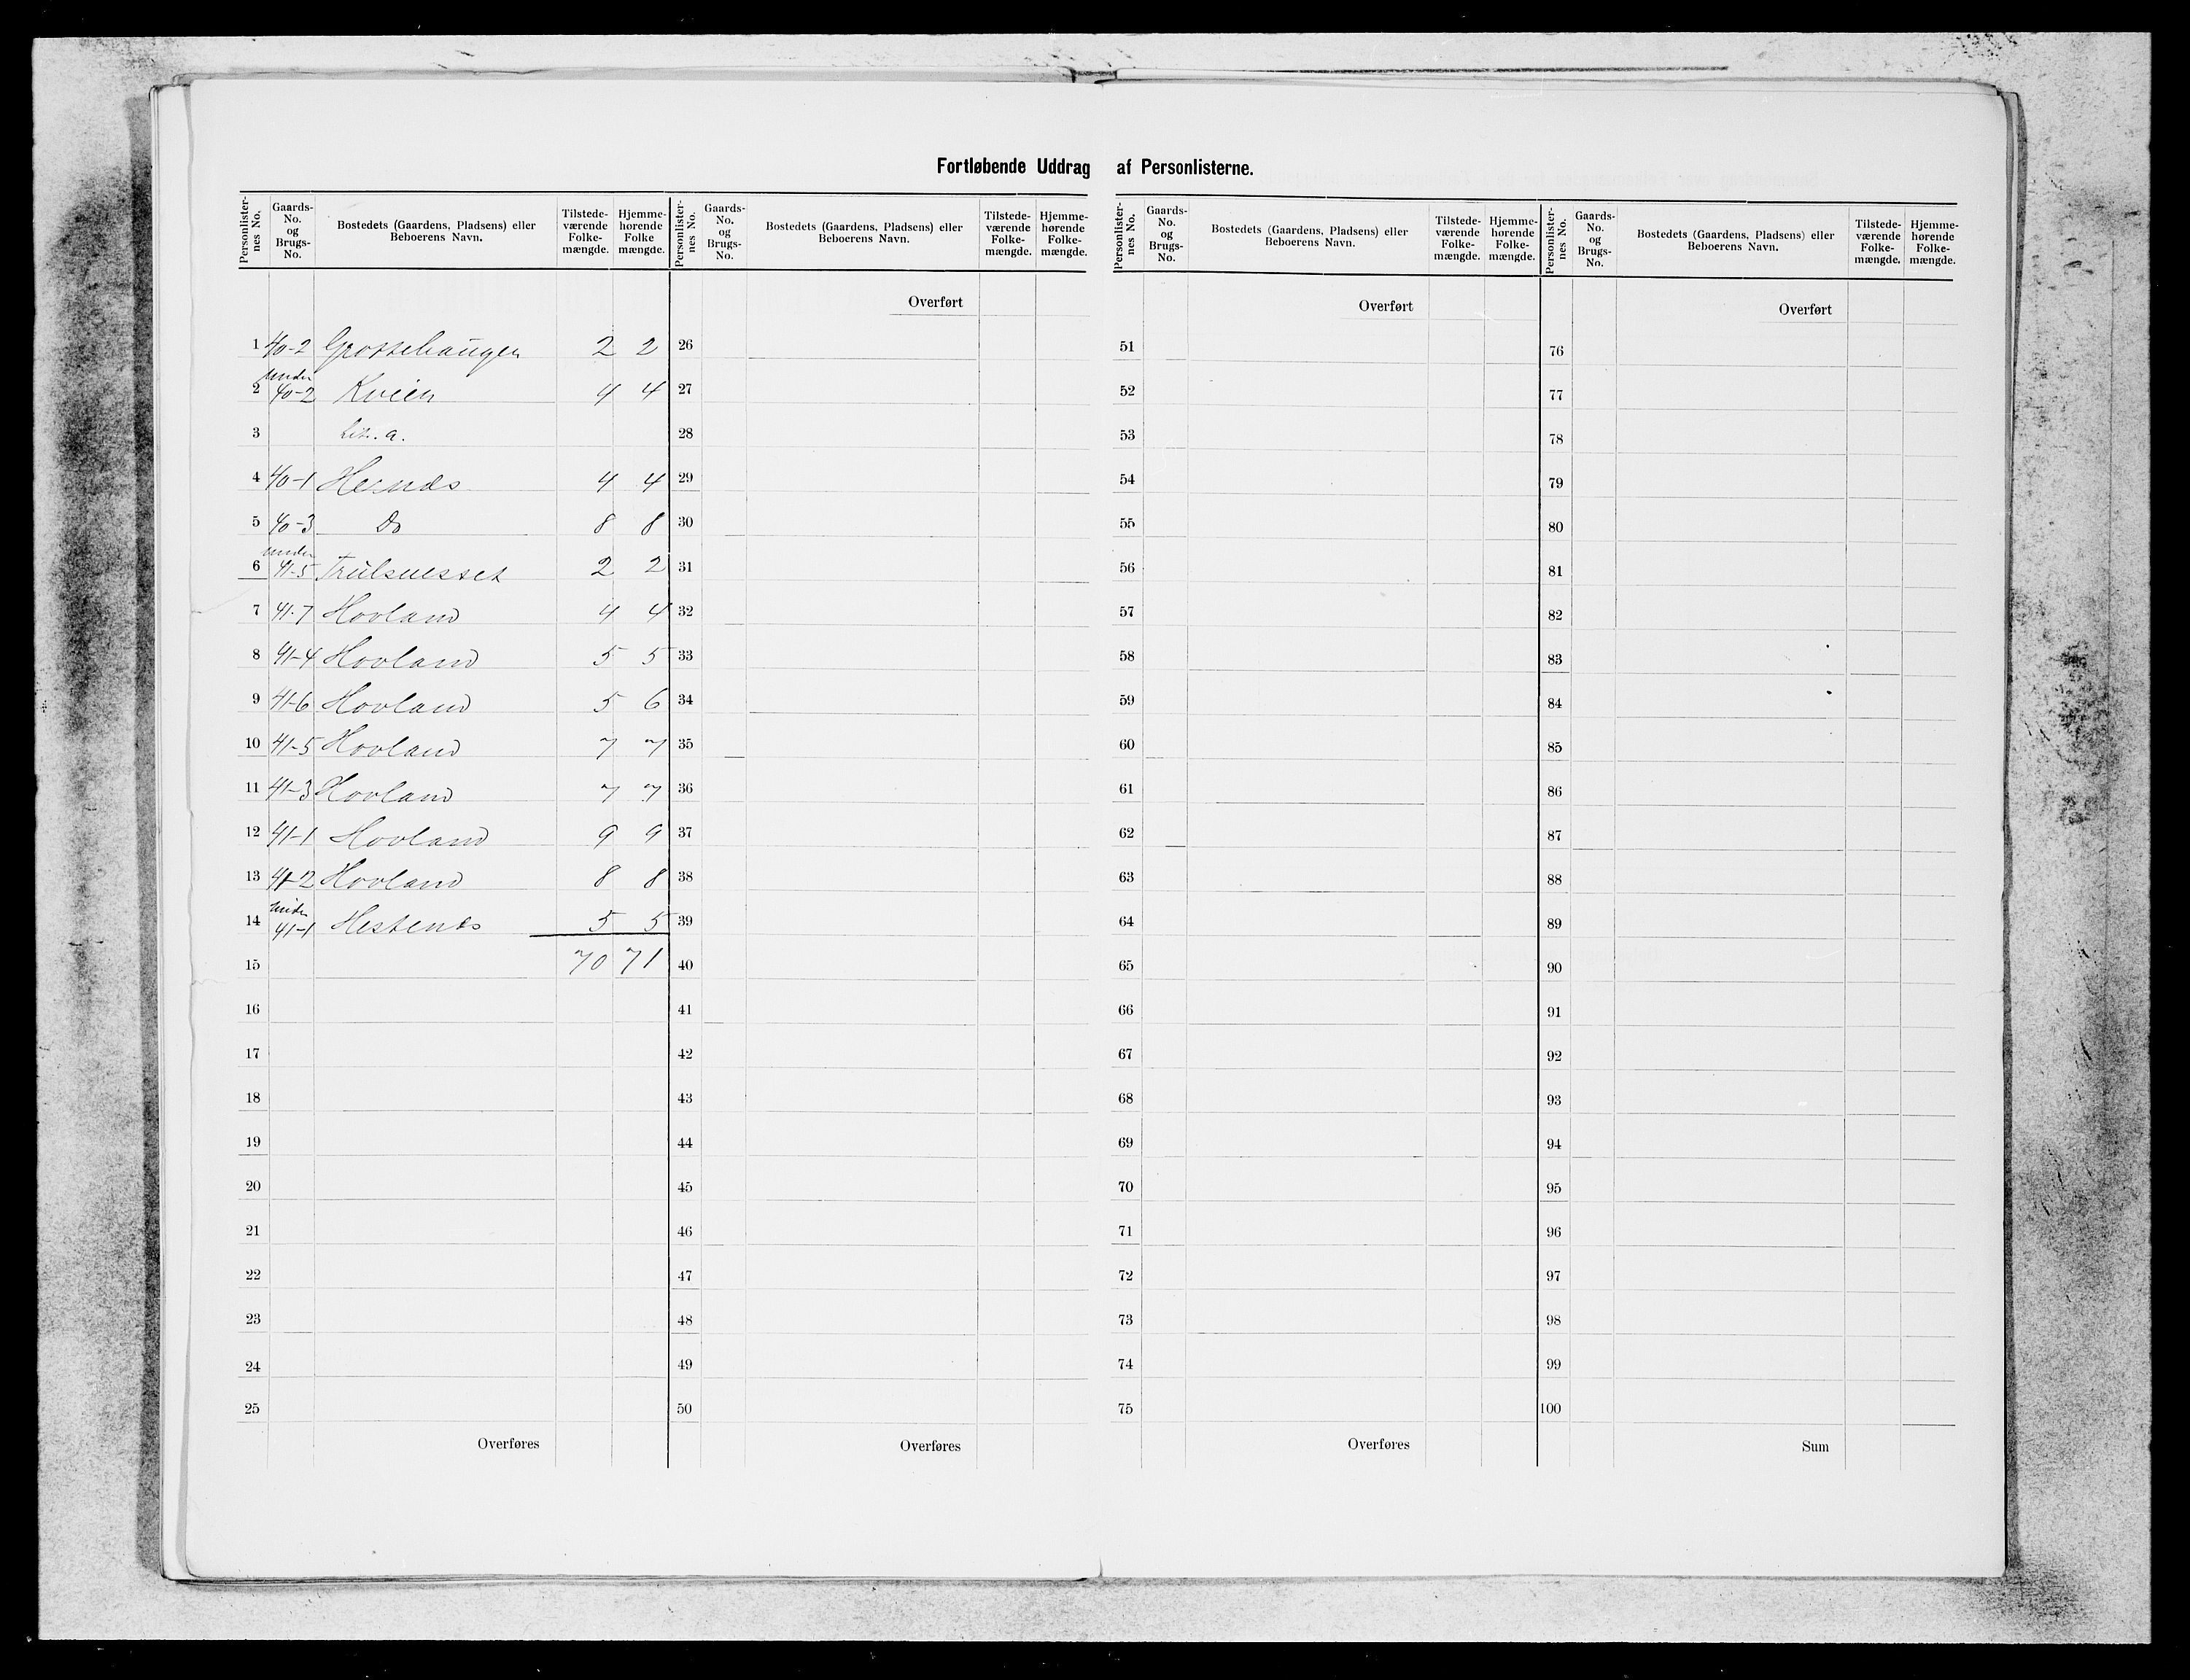 Fortløbende Uddrag af Personlisterne.
Personlister-nes No. Gaards-No. og Brugs-No. Bostedets (Gaardens, Pladsens) eller Beboerens Navn. Tilstede-værende Folke-mængde. Hjemme-hørende Folke mængde.
1 40-2 2 2
2 under 40-2 Kvien 4 4
3 Lit. a.
4 40-1 Hernes 4 4
5 40-3 Do 8 8
6 under 41-5 Trulsnesset 2 2
7 41-7 Hovland 4 4
8 41-4 Hovland 5 5
9 41-6 Hovland 5 6
10 41-5 Hovland 7 7
11 41-3 Hovland 7 7
12 41-1 Hovland 9 9
13 41-2 Hovland 8 8
14 under 41-1 Hestenes 5 5
15 70 71
16
17
18
19
20
21
22
23
24
25
Overføres
Personlister-nes No. Gaards-No. og Brugs-No. Bostedets (Gaardens, Pladsens) eller Beboerens Navn. Tilstede-værende Folke-mængde. Hjemme-hørende Folke-mængde.
Overført
26
27
28
29
30
31
32
33
34
35
36
37
38
39
40
41
42
43
44
45
46
47
48
49
50
Overføres
Personlister-nes No. Gaards-No. og Brugs-No. Bostedets (Gaardens, Pladsens) eller Beboerens Navn. Tilstede-værende Folke-mængde. Hjemme-hørende Folke-mængde.
Overført
51
52
53
54
55
56
57
58
59
60
61
62
63
64
65
66
67
68
69
70
71
72
73
74
75
Overføres
Personlister-nes No. Gaards-No. og Brugs-No. Bostedets (Gaardens, Pladsens) eller Beboerens Navn. Tilstede-værende Folke-mængde. Hjemme-hørende Folke-mængde.
Overført
76
77
78
79
80
81
82
83
84
85
86
87
88
89
90
91
92
93
94
95
96
97
98
99
100
Sum